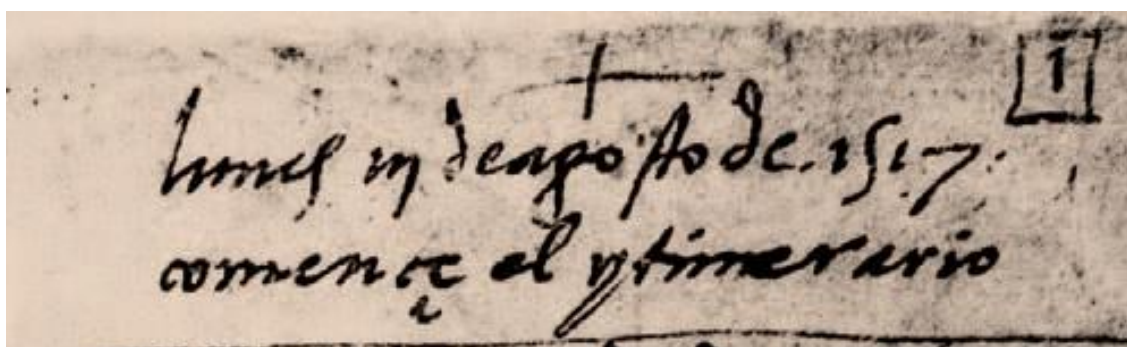 1
lunes iij de agosto de .1517.
comencę el ytinerario